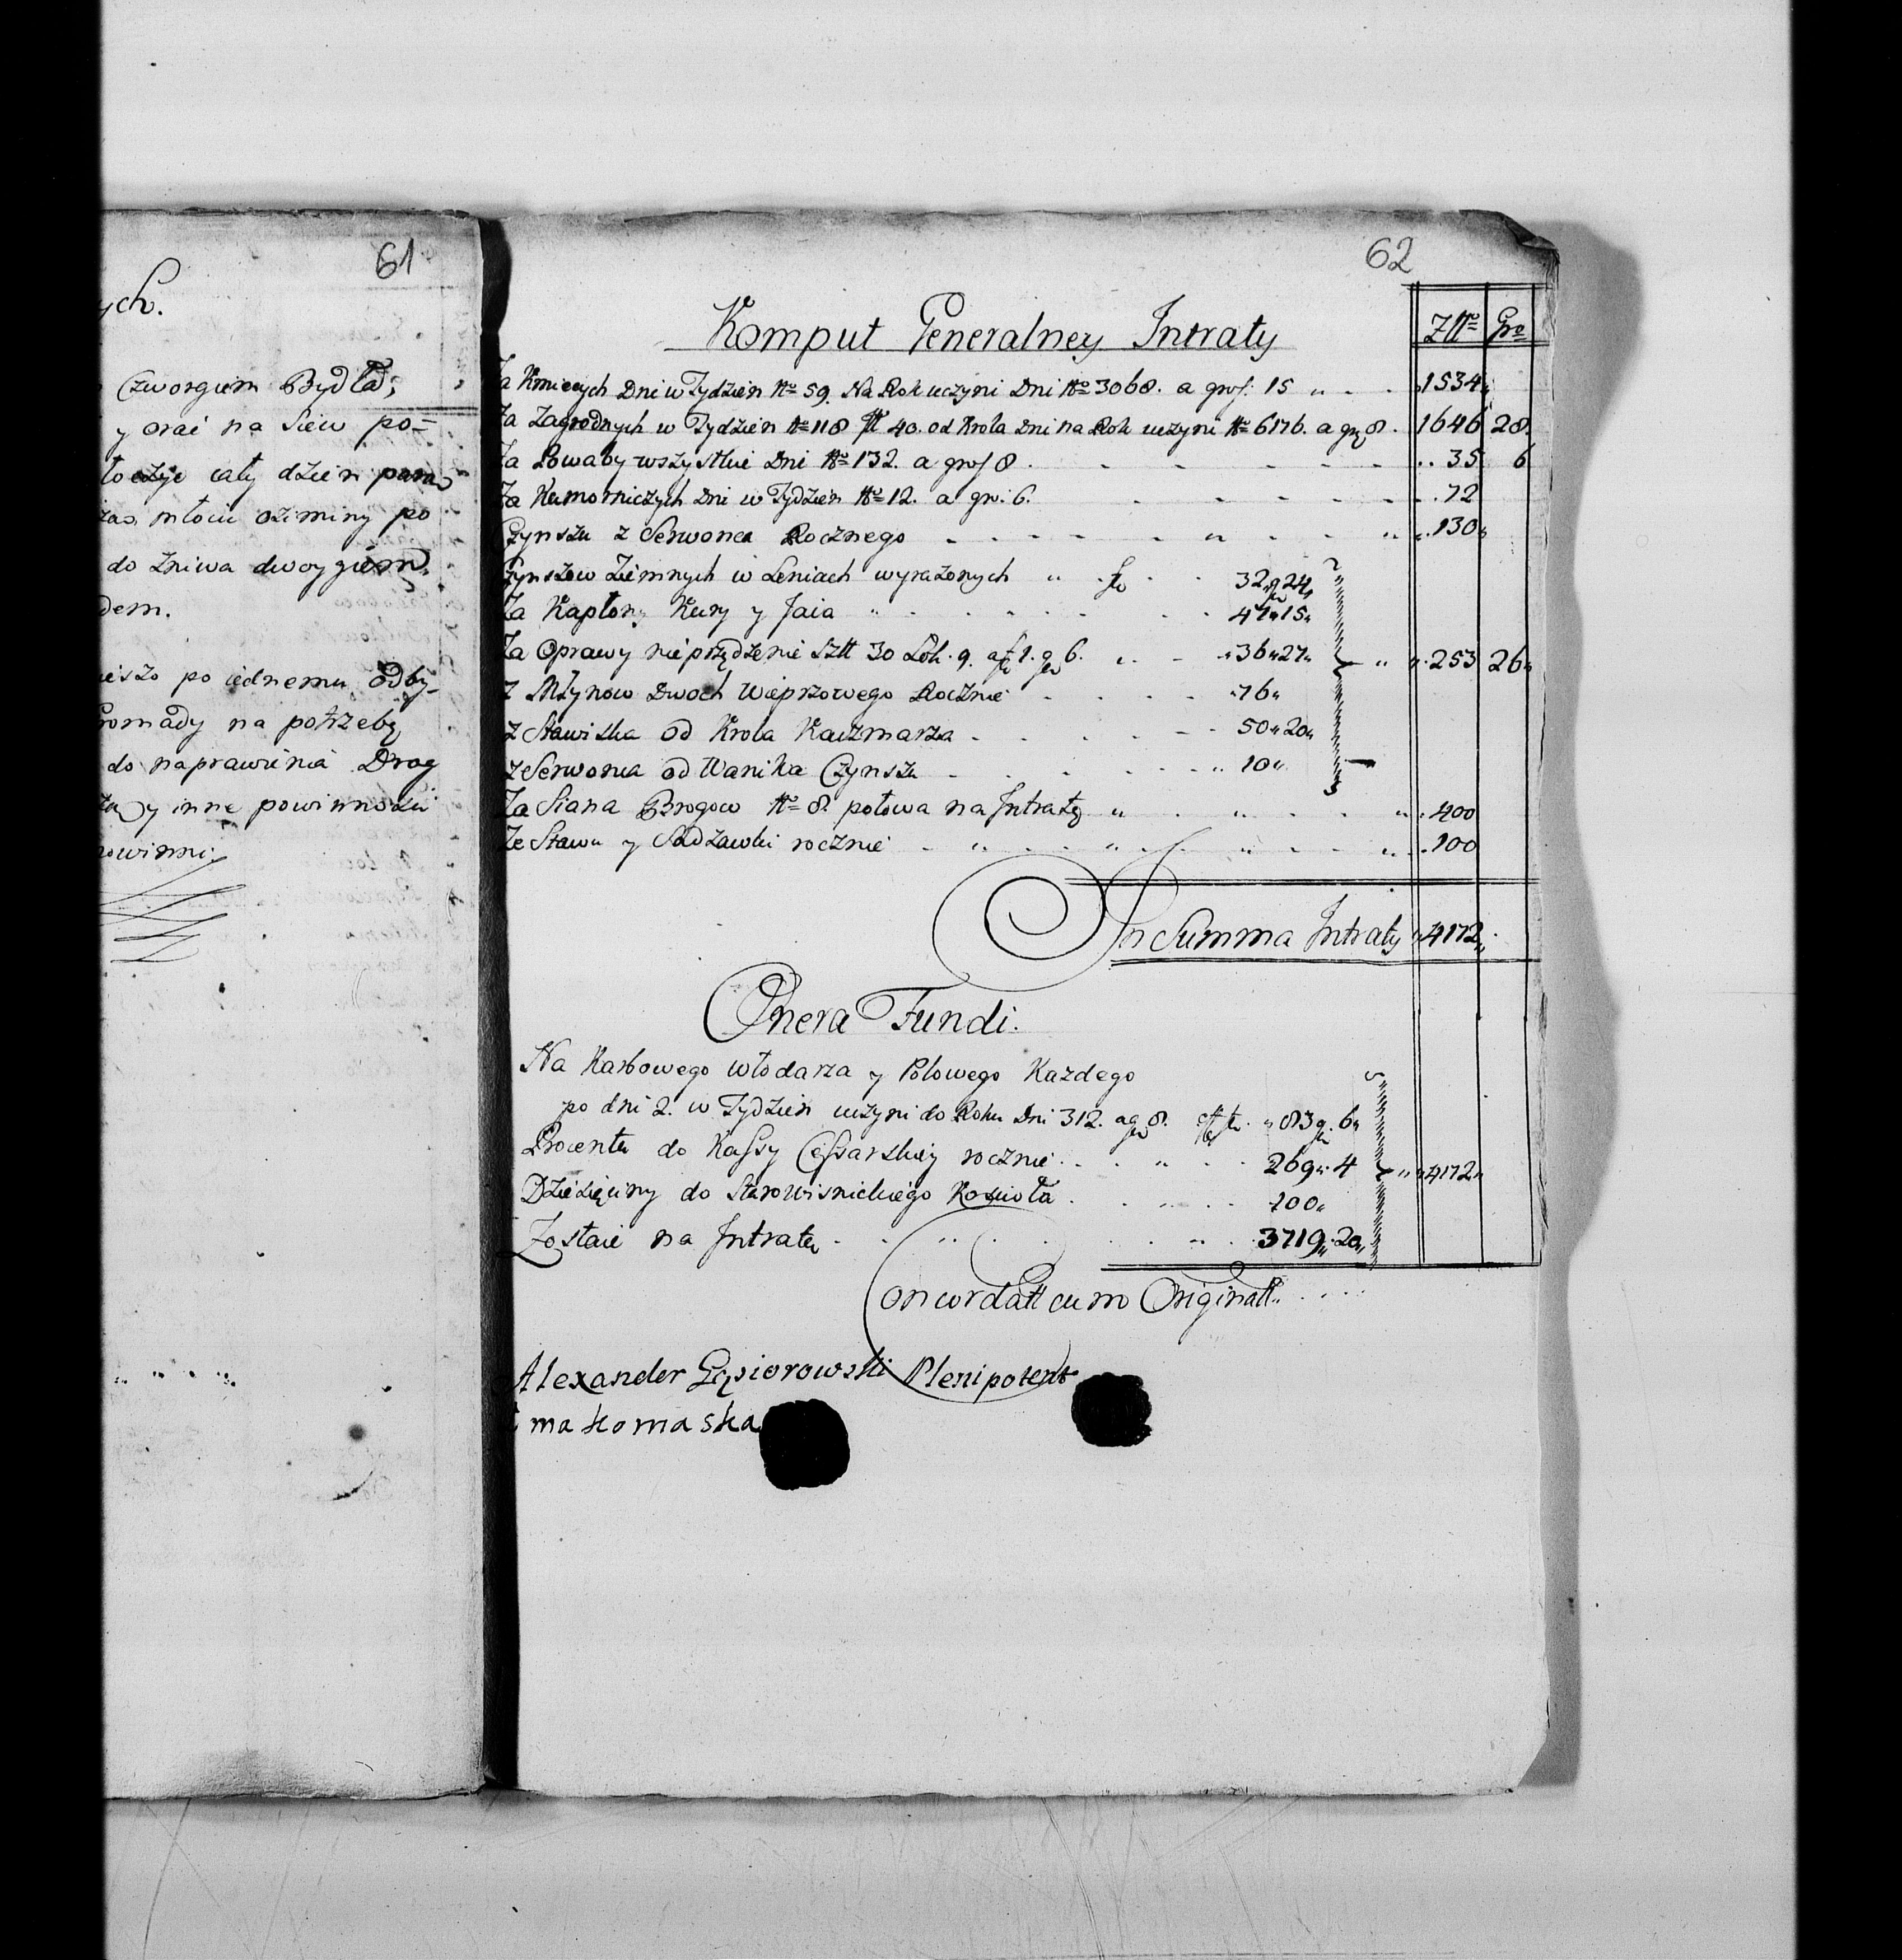 61
ych.
Czworgiem Bydła;
y orać na Siew po=
cały dzień para
młocić oziminy po
do żniwa dwoygiem,
dem.
po iednemu odby-
romady na potrzebę
do naprawienia Drog
y inne powinności
powinni.
62
Komput Generalney Intraty
Złł Gro
Za Kmiecych Dni w Tydzień No 59. Na Rok uczyni Dni No 3068. a gros. 15 1534
Za Zagrodnych w Tydzień No 118 40. od Krola Dni na Rok uczyni No 6176. a gr 8. 1646 28
Za Powaby wszystkie Dni No 132. a gros 8. 35 6
Za Kumorniczych Dni w Tydzień No 12. a gr. 6. 72
Czynszu z Serwonca Rocznego 130
Czynszow Ziemnych w Leniach wyrażonych 32 g 24
Za Kapłony Kury y Jaia 47 15
Za Oprawy nieprzędzenie Sztt 30 Łok. 9. a f 1. g 6. 36 27 253 26
Z Młynow Dwoch Wieprzowego Rocznie 76
z Stawiska od Krola Kaczmarza 50 20
z Serwonca od Wanika Czynszu 10
Za Siana Brogow No 8. połowa na Intratę 400
Ze Stawu y Sadzawki rocznie 100
In Summa Intraty 4172
Onera Fundi.
Na Karbowego włodarza y Polowego Każdego
po dni 2. w Tydzień uczyni do Roku Dni 312. a g 8. 83 g. 6
Procentu do Kassy Cessarskiey rocznie 269 4 4172
Dziesięciny do Starowisnickiego Kościoła 100
Zostaie na Intratę 3719 20
Concordatt cum Originali
Alexander Gąsiorowski Plenipotent